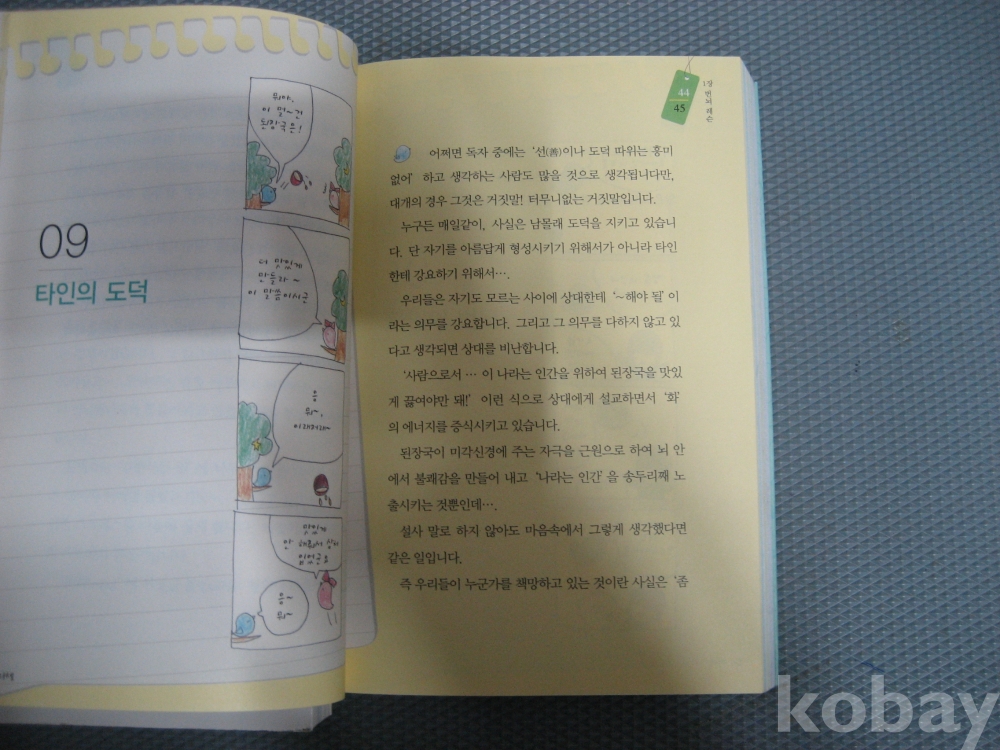 09
타인의 도덕
뭐야,
이 멀~건
된장국은!
더 맛있게
만들라~
이 말씀이시군
응
뭐~,
이래저래~
맛있게
안 해줘서 삐쳐
있었군요
응~
뭐~
44
45
1장 번뇌 레슨
어쩌면 독자 중에는 ‘선(善)이나 도덕 따위는 흥미
없어’ 하고 생각하는 사람도 많을 것으로 생각됩니다만,
대개의 경우 그것은 거짓말! 터무니없는 거짓말입니다.
누구든 매일같이, 사실은 남몰래 도덕을 지키고 있습니
다. 단 자기를 아름답게 형성시키기 위해서가 아니라 타인
한테 강요하기 위해서….
우리들은 자기도 모르는 사이에 상대한테 ‘~해야 될’ 이
라는 의무를 강요합니다. 그리고 그 의무를 다하지 않고 있
다고 생각되면 상대를 비난합니다.
‘사람으로서 … 이 나라는 인간을 위하여 된장국을 맛있
게 끓여야만 돼!’ 이런 식으로 상대에게 설교하면서 ‘화’
의 에너지를 증식시키고 있습니다.
된장국이 미각신경에 주는 자극을 근원으로 하여 뇌 안
에서 불쾌감을 만들어 내고 ‘나라는 인간’ 을 송두리째 노
출시키는 것뿐인데….
설사 말로 하지 않아도 마음속에서 그렇게 생각했다면
같은 일입니다.
즉 우리들이 누군가를 책망하고 있는 것이란 사실은 ‘좀
kobay